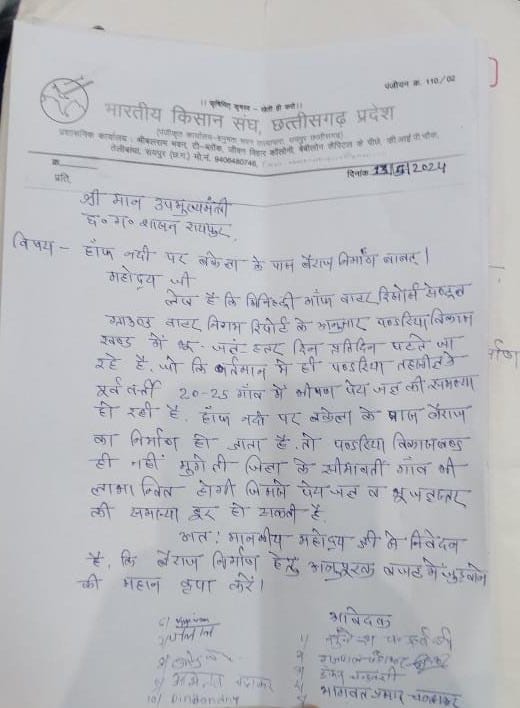 पंजीयन क्र. 110/02
।। कृषिमित् कृषस्व - खेती ही करो ।।
भारतीय किसान संघ, छत्तीसगढ़ प्रदेश
प्रशासनिक कार्यालय : श्रीबलराम भवन, टी-ब्लॉक, जीवन विहार कॉलोनी, बेबीलोन हॉस्पिटल के पीछे, व्ही.आई.पी.चौक,
तेलीबांधा, रायपुर (छ.ग.) मो.नं. 9406480746,
क्र.
दिनांक 2024
प्रति,
श्री मान उपमुख्यमंत्री
छ०ग० शासन रायपुर,
विषय - हॉफ नदी पर बकेला के पास बैराज निर्माण बाबत्।
महोदय जी
लेख है कि मिनिस्ट्री ऑफ वाटर रिसोर्स सेन्ट्रल
ग्राउण्ड वाटर निगम रिपोर्ट के अनुसार पण्डरिया विकास
खण्ड में भू-जल स्तर दिन प्रतिदिन घटते जा
रहे है. जो कि वर्तमान में ही पण्डरिया तहसील के
पूर्ववर्ती 20-25 गाँव में भीषण पेय जल की समस्या
हो रही है. हॉफ नदी पर बकेला के पास बैराज
का निर्माण हो जाता है. तो पण्डरिया विकासखण्ड
ही नहीं मुंगेली जिला के सीमावर्ती गाँव भी
लाभान्वित होगी जिससे पेयजल व भूजलस्तर
की समस्या दूर हो सकती है.
अतः माननीय महोदय जी से निवेदन
है. कि बैराज निर्माण हेतु अनुपूरक बजट में जुड़वाने
की महान कृपा करें।
आवेदक